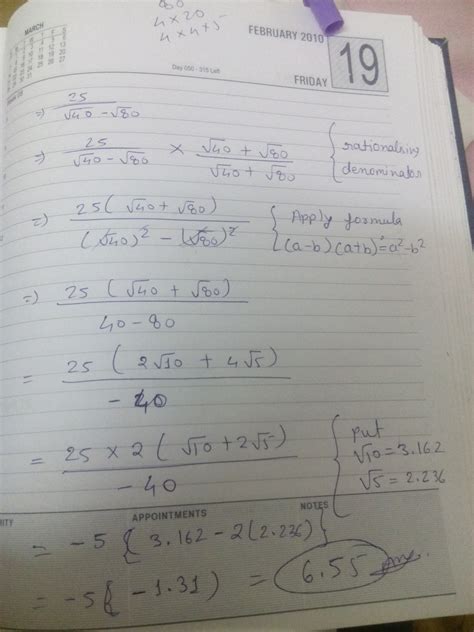 80
4×20
4×4×5
MARCH
FEBRUARY 2010
19
FRIDAY
Day 050 : 315 Left
=) 25/(√40 - √80)
=) 25/(√40 - √80) × (√40 + √80)/(√40 + √80) { rationalising denominator
=) 25(√40 + √80)/((√40)² - (√80)²) { Apply formula
(a-b)(a+b) = a²-b²
=) 25(√40 + √80)/(40-80)
= 25(2√10 + 4√5)/(-40)
= 25×2(√10 + 2√5)/(-40) { put
√10 = 3.162
√5 = 2.236
APPOINTMENTS
NOTES
= -5{3.162 - 2(2.236)}
= -5{-1.31) = 6.55 ans.